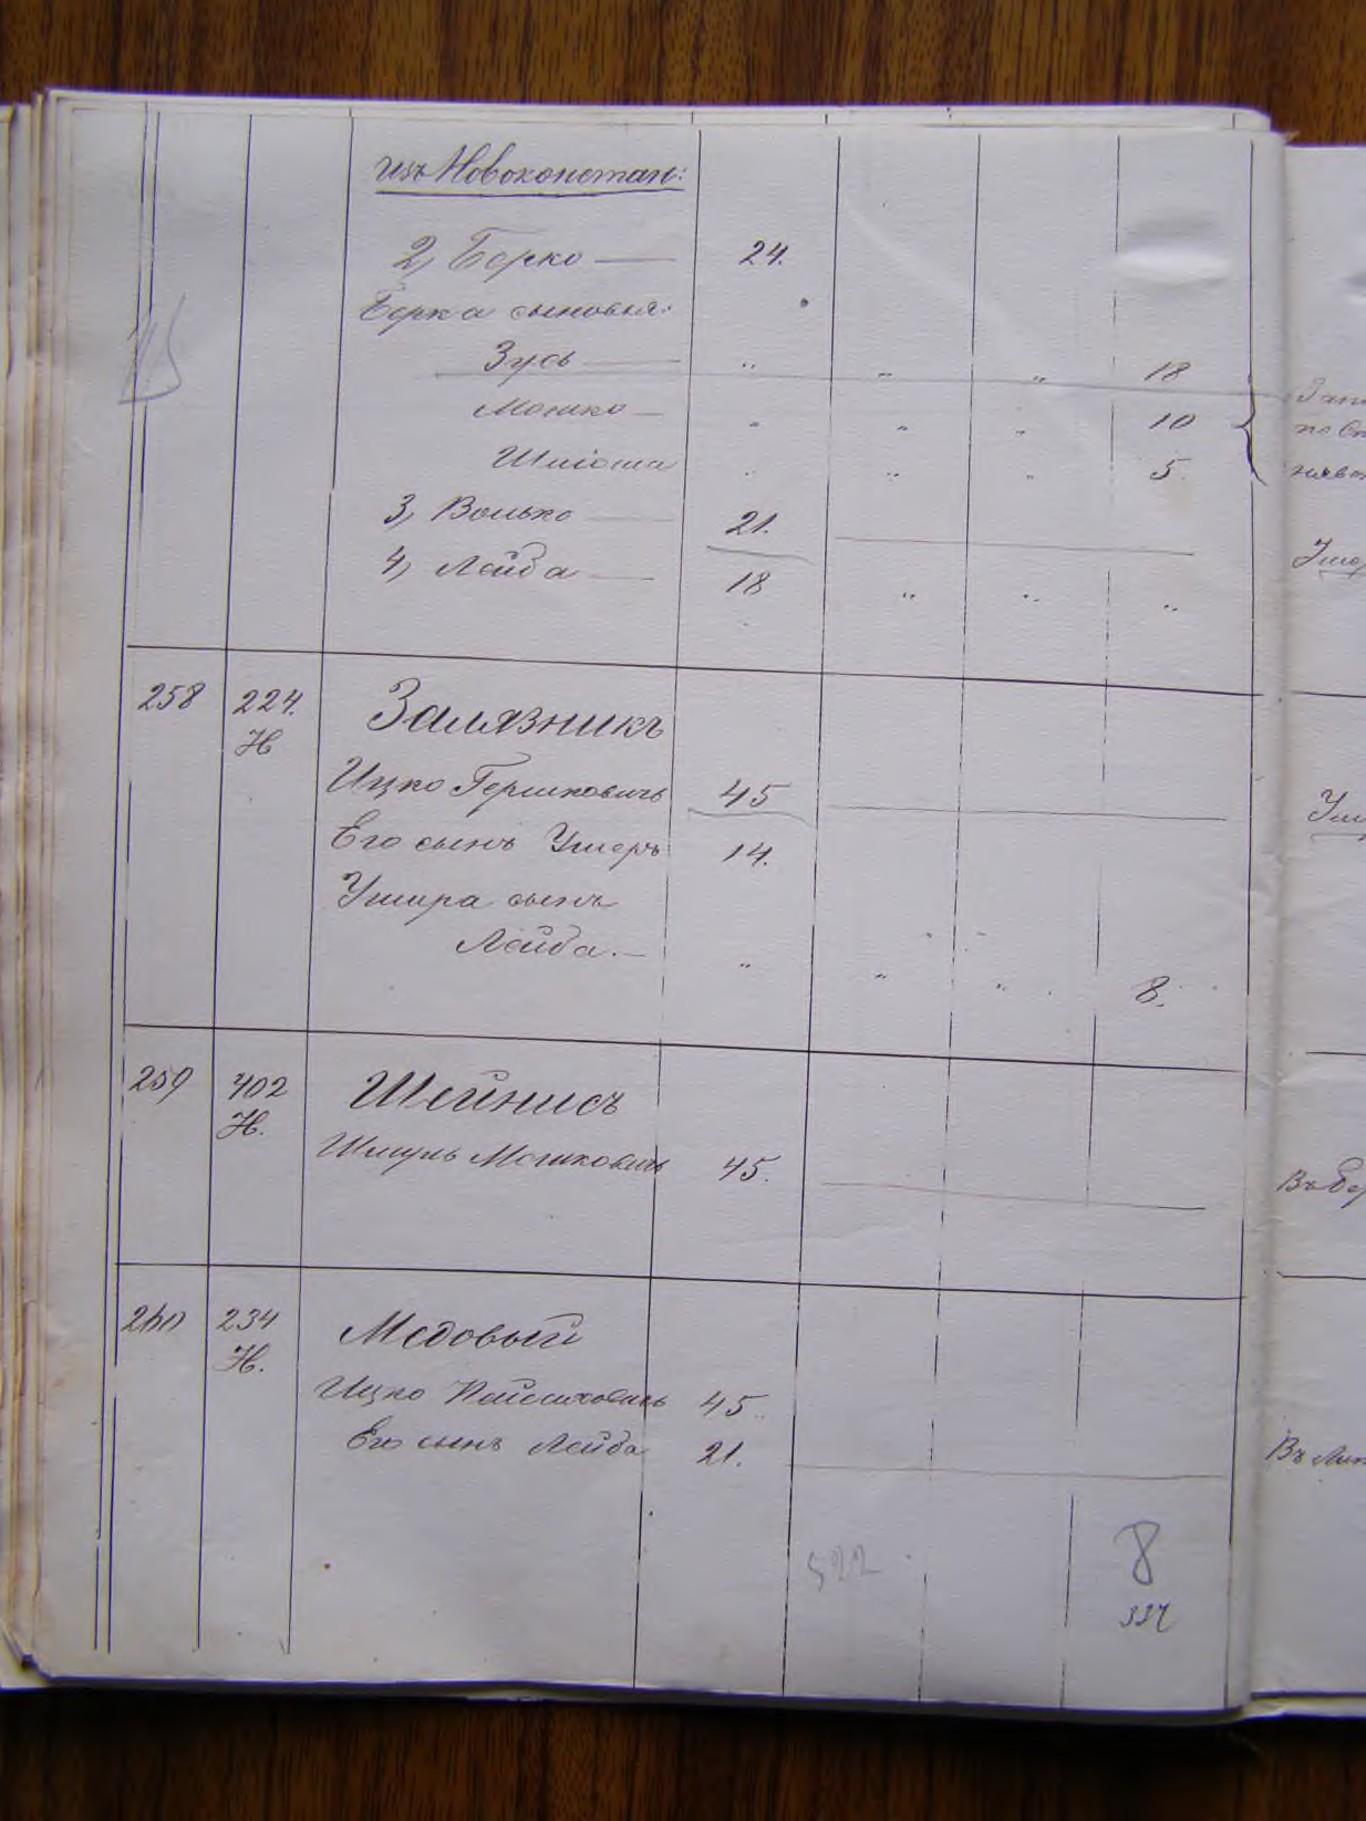 изъ Новоконстан:
2, Берко — 24.
Берка сыновья:
Зусь — " " " 18
Мошко — " " " 10
Шлiома " " " 5.
3, Волько — 21.
4, Лейба — 18 " " "
258 224. Залязникъ
Н
Ицко Гершковичь 45
Его сынъ Умеръ 14.
Умера сынъ
Лейба. — " " " 8.
259 402 Шейнисъ
Н.
Шмуль Мошковичь 45.
260 234 Медовый
Н.
Ицко Пейсаховичь 45.
Его сынъ Лейба 21.
522 8